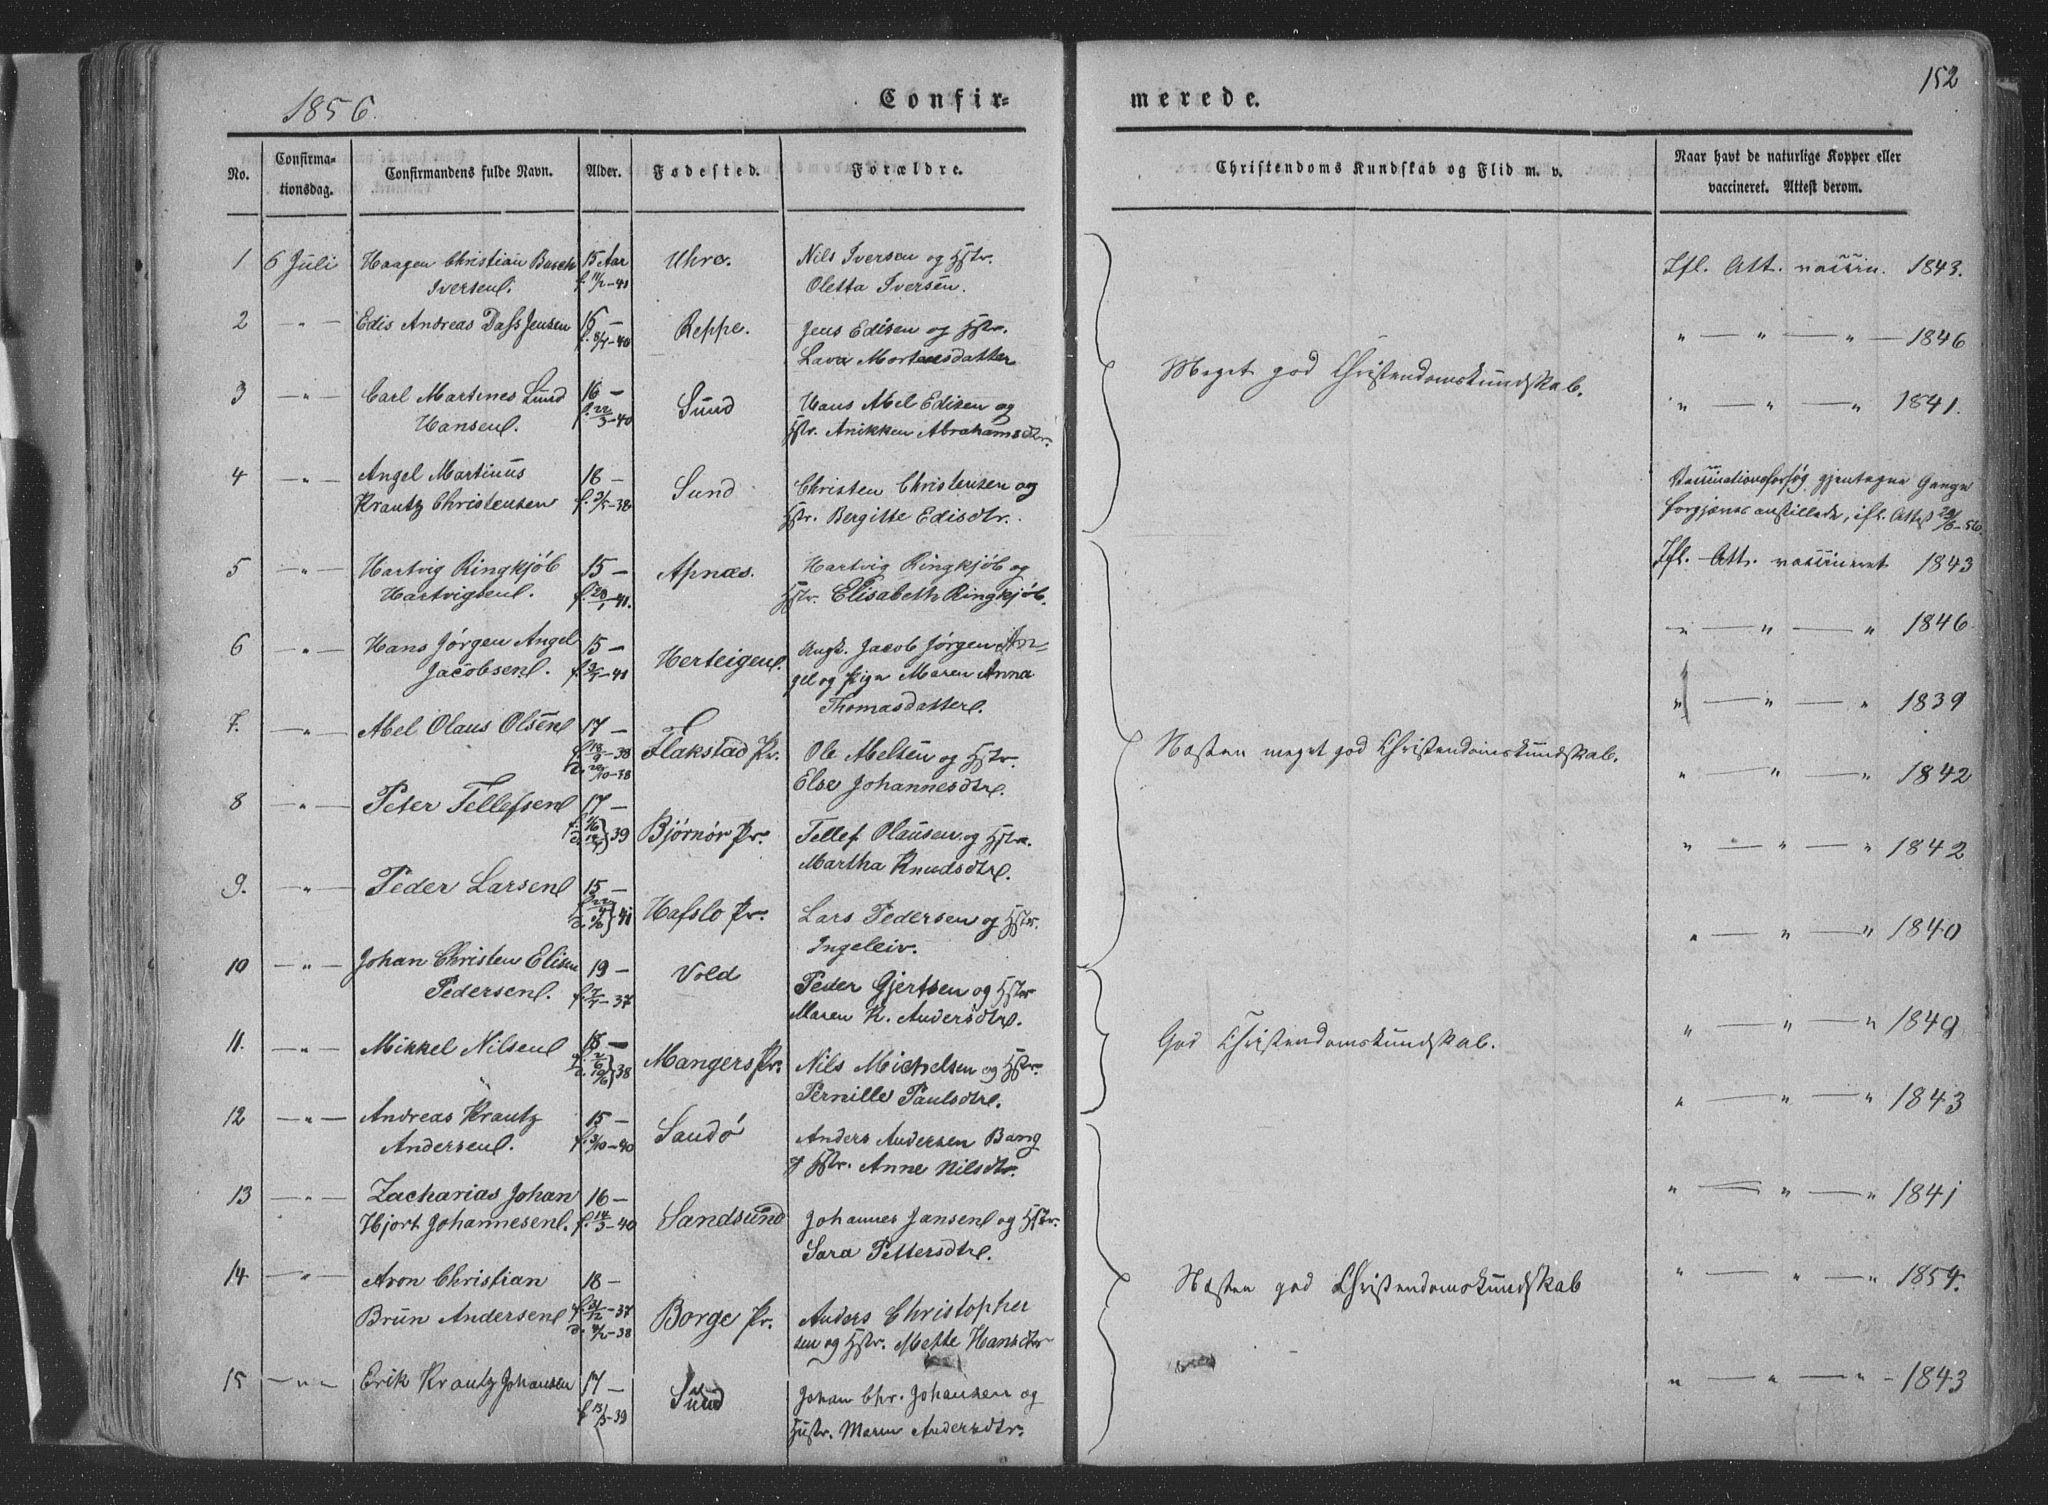 1856.
Confir-
merede.
152
No.
Confirma-
tionsdag.
Confirmandens fulde Navn.
Alder.
Fødested.
Forældre.
Christendoms Kundskab og Flid m. v.
Naar havt de naturlige Kopper eller
vaccineret. Attest derom.
1 6 Juli Haagen Christian Busch 15 Aar Uhre. Nils Iversen og Hstr.
Iversen. f. 11/2-41 Oletta Iversen.
Ifl. Att. vaccin. 1843.
2 — " — Edis Andreas Dass Jensen 16 — Reppe. Jens Edisen og Hstr.
-40 Lava Mortensdatter
" — " — " — 1846
3 — " — Carl Martines Sund 16 — Sund Hans Abel Edisen og
Hansen. f. 22/3-40 Hstr. Anikken Abrahamsdtr.
" — " — " 1841.
Meget god Christendomskundskab.
4 — " — Angel Martinus 18 — Sund Christen Christensen og
Krantz Christensen f. 3/5-38 Hstr. Bergitte Edisdtr.
Vaccinationsforsøg gjentagne Gange
forgjæves anstillede, ifl. Attest -56.
5 — " — Hartvig Ringkjøb 15 — Apnæs. Hartvig Ringkjøb og
Hartvigsen. f. 20/1-41. Hstr. Elisabeth Ringkjøb.
Ifl. Att. vaccineret 1843
6 — " — Hans Jørgen Angel 15 — Herteigen. Ungk. Jacob Jørgen An-
Jacobsen. -41 gel og Pige Maren Anna
Thomasdatter.
" — " — " 1846
7. — " — Abel Olaus Olsen 17 — Flakstad Pr. Ole Abelsen og Hstr.
f. 18/9-38
d. 28/10-38 Else Johannesdtr.
" — " — " 1839
Næsten meget god Christendomskundskab.
8 — " — Peter Tellefsen 17 — Bjørnør Pr. Tellef Olausen og Hstr.
39 Martha Knudsdtr.
" — " — " 1842
9. — " — Peder Larsen 15 — Hafslo Pr. Lars Pedersen og Hstr.
41 Ingeleiv.
" — " — " 1842
10 — " — Johan Christen Elisen 19 — Vold Peder Gjertsen og Hstr
Pedersen. -37 Maren K. Andersdtr.
" — " — " 1840
11. — " — Mikkel Nilsen 18 — Mangers Pr. Nils Michelsen og Hstr.
38 Pernille Paulsdtr.
" — " — " 1840
God Christendomskundskab.
12 — " — Andreas Krantz 15 — Sandø Anders Andersen Bang
Andersen. f. 3/10-40 og Hstr. Anne Nilsdtr.
" — " — " 1843
13 — " — Zacharias Johan 16 — Sandsund Johannes Jansen og Hstr.
Hjort Johannesen. f. 14/3-40 Sara Pettersdtr.
" — " — " 1841
14. — " — Aron Christian 18 — Borge Pr. Anders Christopher
Brun Andersen f. 31/12-37 sen og Hstr. Mette Hansdtr
d. 4/2-38
" — " — " 1854.
Næsten god Christendomskundskab
15 — " — Erik Krantz Johansen 17 — Sund Johan Chr. Johansen og
f. 13/3-39 Hustr. Maren Andersdtr.
" — " — " - 1843